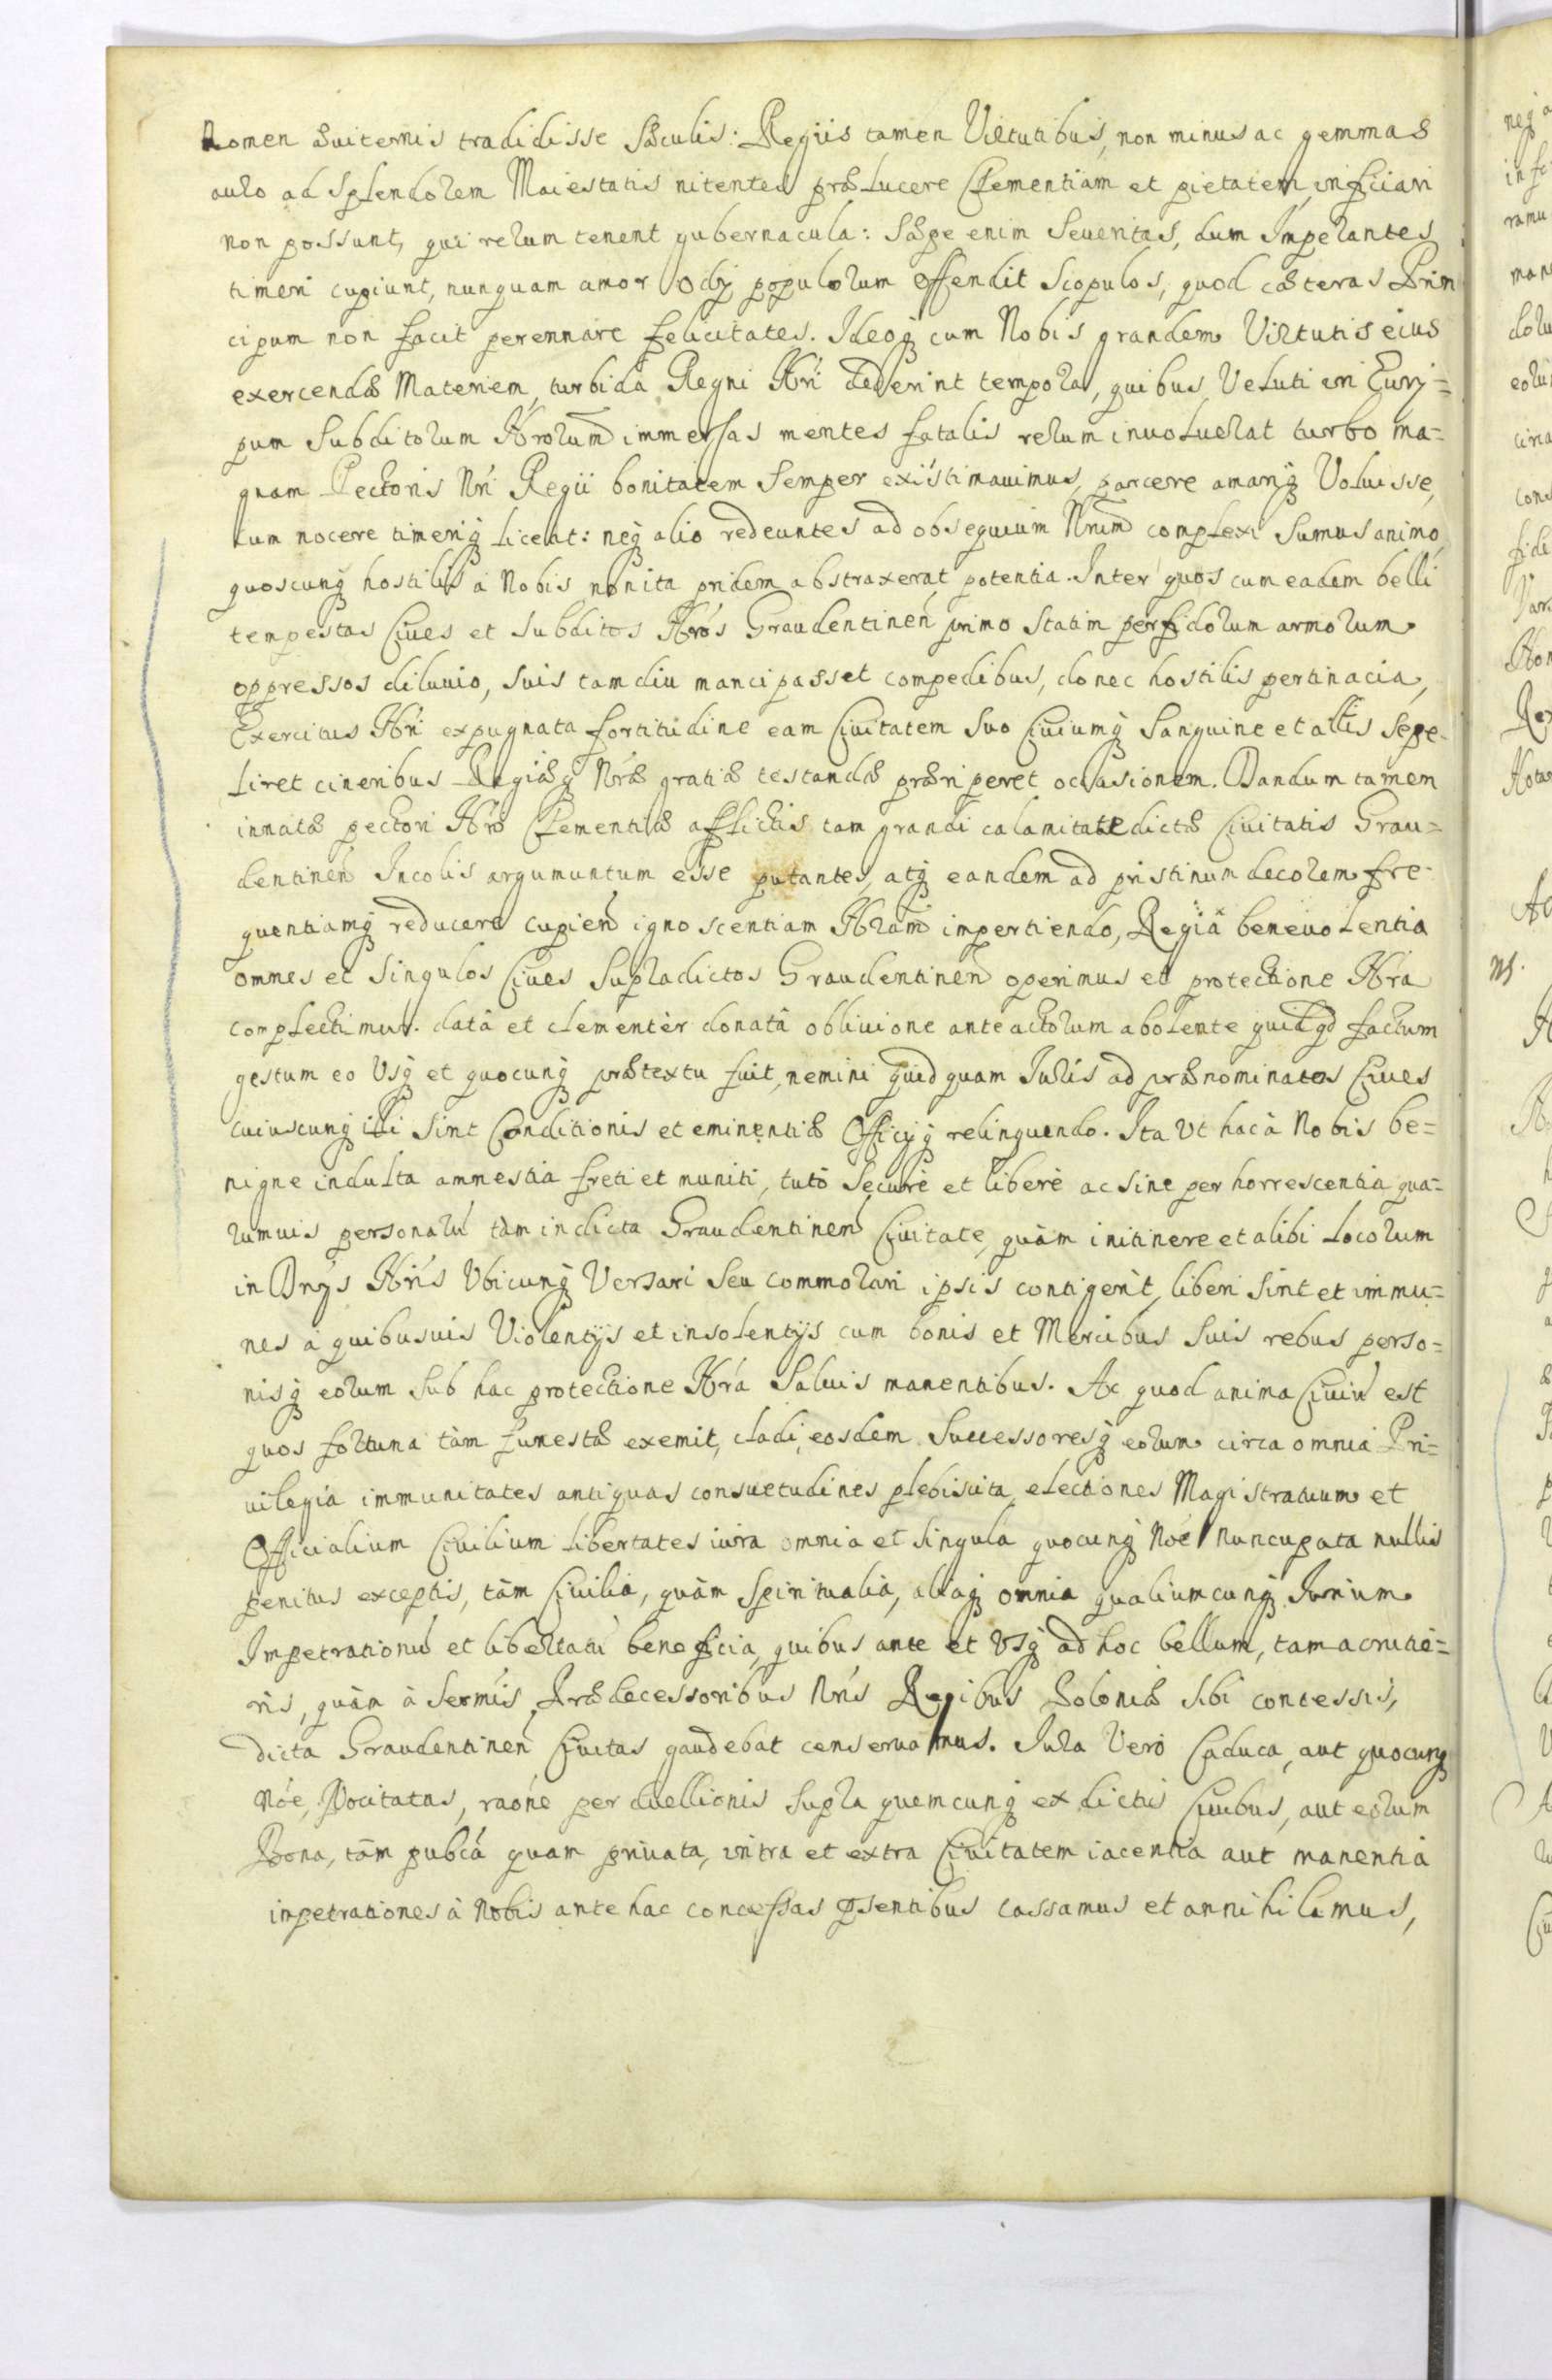 nomen æuiternis tradidisse sæculis: Regijs tamen Virtutibus, non minus ac gemmas
auro ad splendorem Maiestatis nitentes prælucere Clementiam et pietatem, inficiari
non possunt, qui rerum tenent gubernacula: Sæpe enim seueritas, dum Imperantes
timeri cupiunt, nunquam amor odij populorum offendit scopulos, quod cæteras Prin
cipum non facit perennare felicitates. Ideoq cum Nobis grandem Virtutis eius
exercendæ Materiem, turbida Regni Nri dederint tempora, quibus Veluti in Eury=
pum subditorum Nrorum immersas mentes fatalis rerum inuoluerat turbo ma=
gnam Pectoris Nri Regii bonitatem semper existimauimus, parcere amariq Voluisse,
cum nocere timeriq liceat: neq alio redeuntes ad obsequium Nrum complexi sumus animo,
quoscunq hostilis à Nobis non ita pridem abstraxerat potentia. Inter quos cum eadem belli
tempestas Ciues et subditos Nros Graudentinen primo statim perfidorum armorum
oppressos diluuio, suis tamdiu mancipasset compedibus, donec hostilis pertinacia,
Exercitus Nri expugnata fortitudine eam Ciuitatem suo Ciuiumq sanguine et altis sepe=
liret cineribus Regiæq Nræ gratiæ testandæ præriperet occasionem. Dandum tamen
innatæ pectori Nro Clementiæ afflictis tam grandi calamitate dictæ Ciuitatis Grau=
dentinen Incolis argumuntum esse putantes, atq eandem ad pristinum decorem fre=
quentiamq reducere cupien ignoscentiam Nram impertiendo, Regiâ beneuolentia
ommes et singulos Ciues supradictos Graudentinen operimus et protectione Nra
complectimur. datâ et clementèr donatâ obliuione anteactorum abolente quidqd factum
gestum eo Vsq et quocunq prætextu fuit, nemini quidquam Iuris ad prænominatos Ciues
cuiuscunq illi sint Conditionis et eminentiæ Officijq relinquendo. Ita Vt hac à Nobis be=
nigne indulta amnestia freti et muniti, tutò secure et liberè ac sine perhorrescentia qua=
rumuis personarū tàm in dicta Graudentinen Ciuitate, quàm in itinere et alibi locorum
in Dnijs Nris Vbicunq Versari seu commorari ipsis contigerit, liberi sint et immu=
nes à quibusuis Violentijs et insolentijs cum bonis et Mercibus suis rebus perso=
nisq eorum sub hac protectione Nra saluis manentibus. Ac quod anima Ciuiū est
quos fortuna tàm funestæ exemit, cladi, eosdem successoresq eorum circa omnia Pri=
uilegia immunitates antiquas consuetudines plebiscita, electiones Magistratuum et
Officialium Ciuilium libertates iura omnia et singula quocunq Noe nuncupata nullis
penitus exceptis, tàm Ciuilia, quàm Spiritualia, aliaq omnia qualiumcunq Iurium
Impetrationū et libertatū beneficia, quibus ante et Vsq ad hoc bellum, tam a crucife=
ris, quàm à sermis Prædecessoribus Nris Regibus Poloniæ sibi concessis,
dicta Graudentinen Ciuitas gaudebat conseruamus. Iura Verò Caduca, aut quocunq
Nóe, Vocitatas, raóne perduellionis supra quemcunq ex dictis Ciuibus, aut eorum
Bona, tàm pubcá quam priuata, intra et extra Ciuitatem iacentia aut manentia
inpetrationes à Nobis ante hac concessas psentibus cassamus et annihilamus,